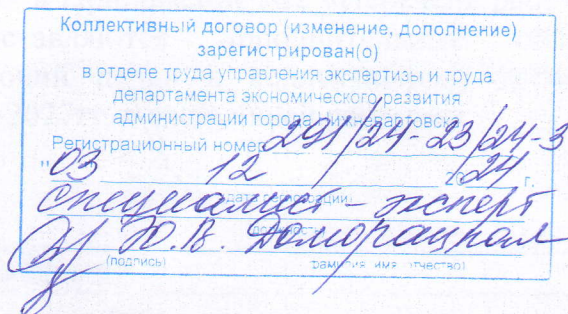 Коллективный договор (изменение, дополнение)
зарегистрирован(о)
в отделе труда управления экспертизы и труда
департамента экономического развития
администрации города Нижневартовска
Регистрационный номер 291/24-23/24-3
"03 12 2024 г.
(дата регистрации)
специалист-эксперт
(должность)
Ю.В. Доморацкая
(подпись) (фамилия, имя, отчество)